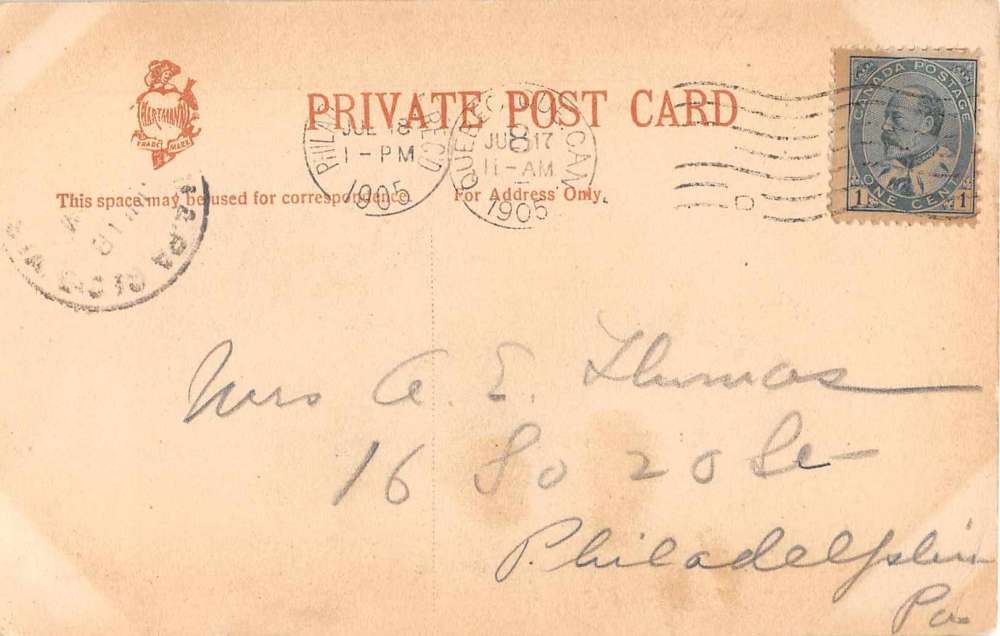 HARTMANN
TRADE MARK
PRIVATE POST CARD
CANADA POSTAGE
ONE CENT
1 1
JUL 18
1-PM
1905
REC'D
QUEBEC, CAN.
8
JUL 17
11-AM
1905
D
This space may be used for correspondence.
For Address Only.
Mrs A. E. Thomas
16 So 20 St
Philadelphia
Pa